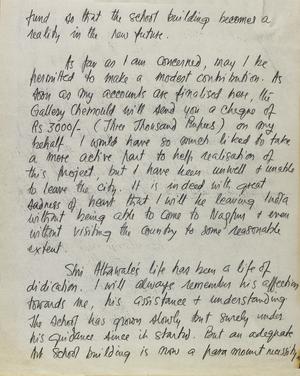 fund so that the school building becomes a
reality in the new future.
As far as I am concerned, may I be
permitted to make a modest contribution. As
soon as my accounts are finalised here, the
Gallery Chemould will send you a cheque of
Rs 3000/- (Three Thousand Rupees) on my
behalf. I would have so much liked to take
a more active part to help realisation of
this project, but I have been unwell & unable
to leave the city. It is indeed with great
sadness of heart that I will be leaving India
without being able to come to Nagpur & even
without visiting the country to some reasonable
extent.
Shri Athawale's life has been a life of
didication. I will always remember his affection
towards me, his assistance & understanding
The school has grown slowly but surely under
his guidance since it started. But an adequate
Art School building is now a paramount necessity